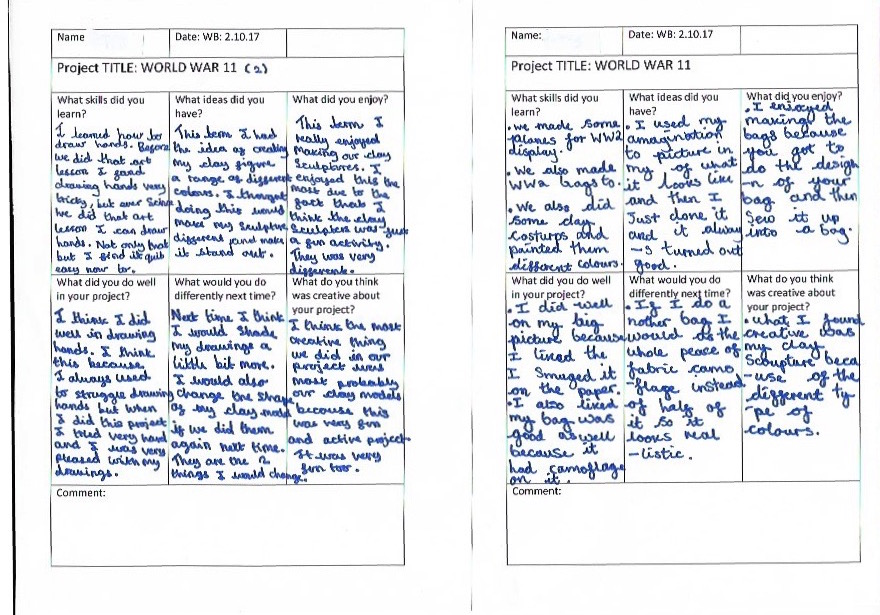 Name
Date: WB: 2.10.17
Project TITLE: WORLD WAR 11 (2)
What skills did you
learn?
I learned how to
draw hands. Before
we did that art
lesson I found
drawing hands very
tricky, but ever Since
we did that art
lesson I can draw
hands. Not only that
but I find it quit
easy now to.
What ideas did you
have?
This term I had
the idea of creating
my clay figure
a range of different
colours. I thought
doing this would
make my Sculpture
different and make
it stand out.
What did you enjoy?
This term I
really enjoyed
making our clay
Sculptures. I
enjoyed this the
most due to the
fact that I
think the clay
Sculpters was just
a fun activity.
They was very
different.
What did you do well
in your project?
I think I did
well in drawing
hands. I think
this because
I always used
to struggle drawing
hands but when
I did this project
I tried very hard
and I was very
pleased with my
drawings.
What would you do
differently next time?
Next time I think
I would Shade
my drawings a
little bit more.
I would also
change the shape
of my clay model
if we did them
again next time.
They are the 2
things I would change.
What do you think
was creative about
your project?
I think the most
creative thing
we did in our
project was
most probably
our clay models
because this
was very fun
and active project.
It was very
fun too.
Comment:
Name:
Date: WB: 2.10.17
Project TITLE: WORLD WAR 11
What skills did you
learn?
• we made some
planes for WW2
display.
• We also made
WW2 bags to.
• We also did
some clay
costurps and
painted them
different colours.
What ideas did you
have?
• I used my
amagination
to picture in
my of what
it looks like
and then I
Just done it
and it alway
-s turned out
good.
What did you enjoy?
• I enjoyed
making the
bags because
you got to
do the design
-n of your
bag and then
Sew it up
into a bag.
What did you do well
in your project?
• I did well
on my big
picture because
I liked the
I Smuged it
on the paper.
• I also liked
my bag was
good as well
because it
had camoflage
on it.
What would you do
differently next time?
• If I do a
nother bag I
would do the
whole peace of
fabric camo
-flage instead
of half of
it so it
looks real
-listic.
What do you think
was creative about your
project?
• what I found
creative was
my clay
Scoupture beca
-use of the
different ty
-pe of
colours.
Comment: